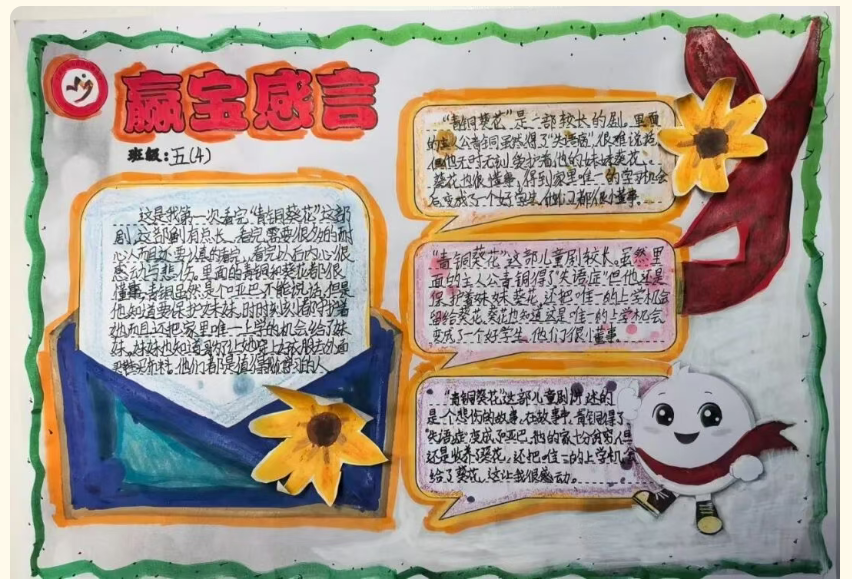 赢宝感言
班级：五（4）
这是我第一次看完“青铜葵花”这部
剧，这部剧有点长，看完需要很多的耐
心，而且还要认真的看完，看完以后内心很
感动与悲伤，里面的青铜和葵花都很
懂事，青铜虽然是个哑巴不能说话，但是
他知道要保护妹妹，时时刻刻看守护着
她而且还把家里唯一上学的机会给了妹
妹，妹妹也知道
他们都是值得 的人
“青铜葵花”是一部较长的剧，里面
的主人公青铜虽然得了“失语病”很难说话，
但他无时无刻 护着他的妹妹葵花，
葵花也很懂事，得到家里唯一的学习机会
后变成了一个好学生，他们都很懂事。
“青铜葵花”这部儿童剧校长，虽然里
面的主人公青铜得了“失语症”但他还是
保护着妹妹葵花，还把唯一的上学机会
留给葵花，葵花也知道这里唯一上学机会
变成了一个好学生，他们很懂事。
“青铜葵花，这部儿童剧所述的
是一个悲伤的故事，在故事中，青铜得了
失语症变成了哑巴，他的家十分贫穷，但
还是收养了葵花，还把唯一的上学机会
给了葵花，这让我很感动。